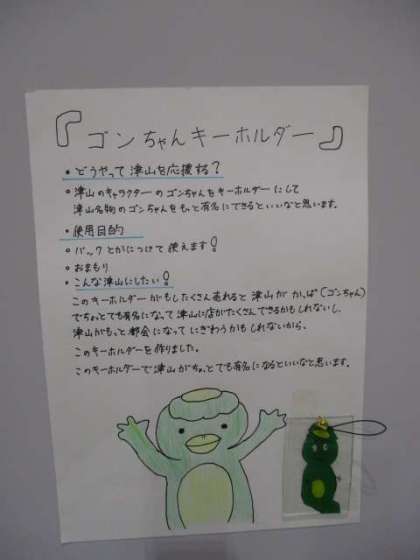 『ゴンちゃんキーホルダー』
・どうやって津山を応援する?
○津山のキャラクターのゴンちゃんをキーホルダーにして
津山名物のゴンちゃんをもっと有名にできるといいなと思います。
・使用目的
○バックとかにつけて使えます!
○おまもり
・こんな津山にしたい!
このキーホルダーがもしたくさん売れると津山がかっぱ(ゴンちゃん)
でちょっとでも有名になって津山に店がたくさんできるかもしれないし、
津山がもっと都会になってにぎわうかもしれないから、
このキーホルダーを作りました。
このキーホルダーで津山がちょっとでも有名になるといいなと思います。